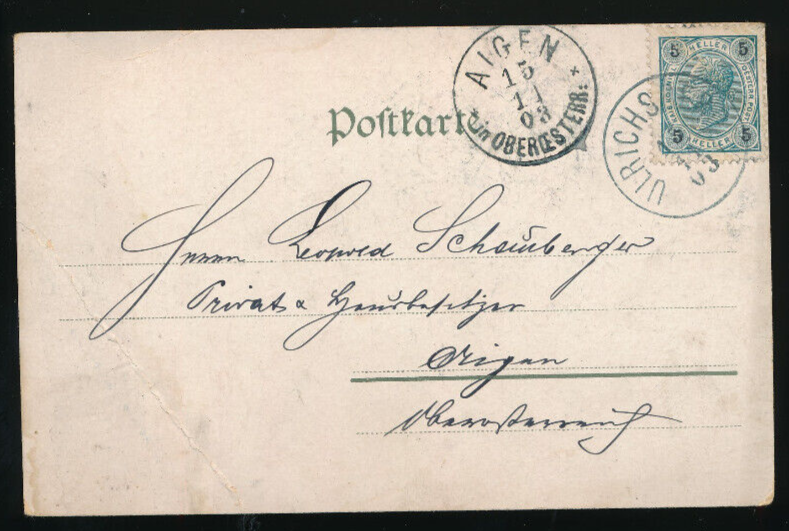 AIGEN
15
11
03
in OBERŒSTERR:
5 HELLER 5
5 HELLER 5
ULRICHS
03
Postkarte
Herrn Leopold Schauberger
Privat & Hausbesitzer
Aigen
Oberösterreich